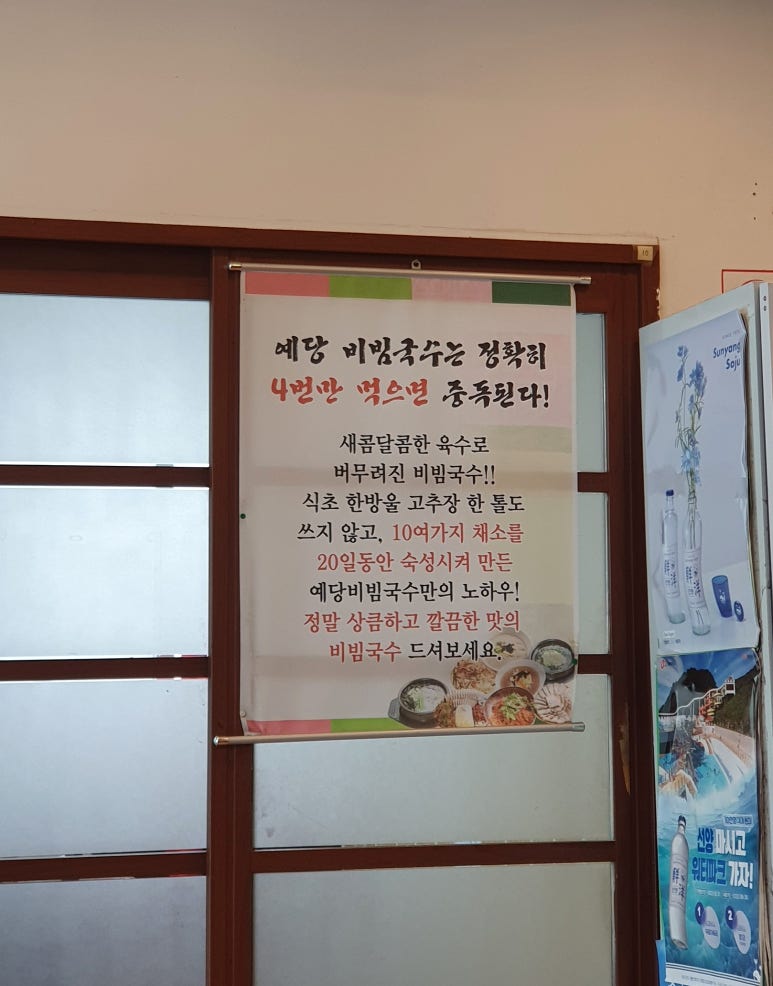 예당 비빔국수는 정확히
4번만 먹으면 중독된다!
새콤달콤한 육수로
버무려진 비빔국수!!
식초 한방울 고추장 한 톨도
쓰지 않고, 10여가지 채소를
20일동안 숙성시켜 만든
예당비빔국수만의 노하우!
정말 상큼하고 깔끔한 맛의
비빔국수 드셔보세요.
10
Sunyang
Soju
선양 마시고
워터파크 가자!
1
2